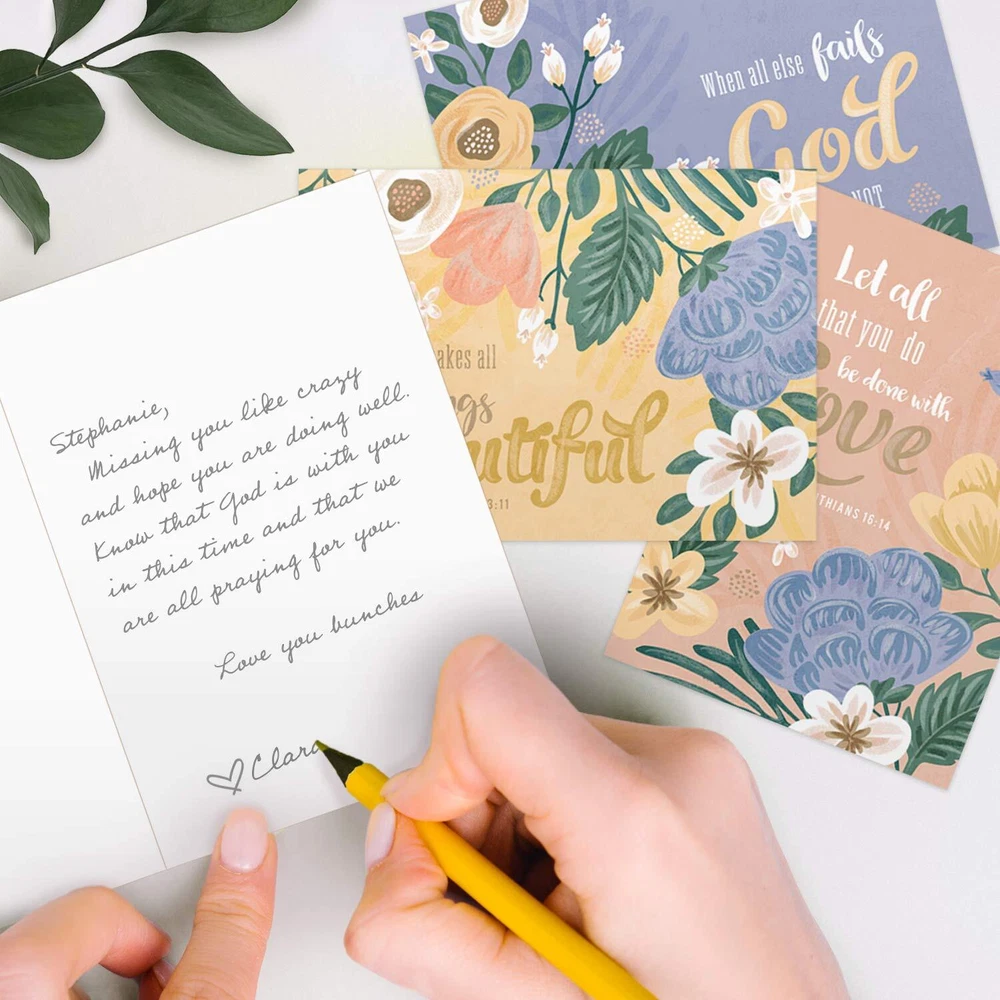 Stephanie,
Missing you like crazy
and hope you are doing well.
Know that God is with you
in this time and that we
are all praying for you.
Love you bunches
Clara
When all else fails
God
NOT
akes all
ngs
utiful
3:11
Let all
that you do
be done with
ove
THIANS 16:14